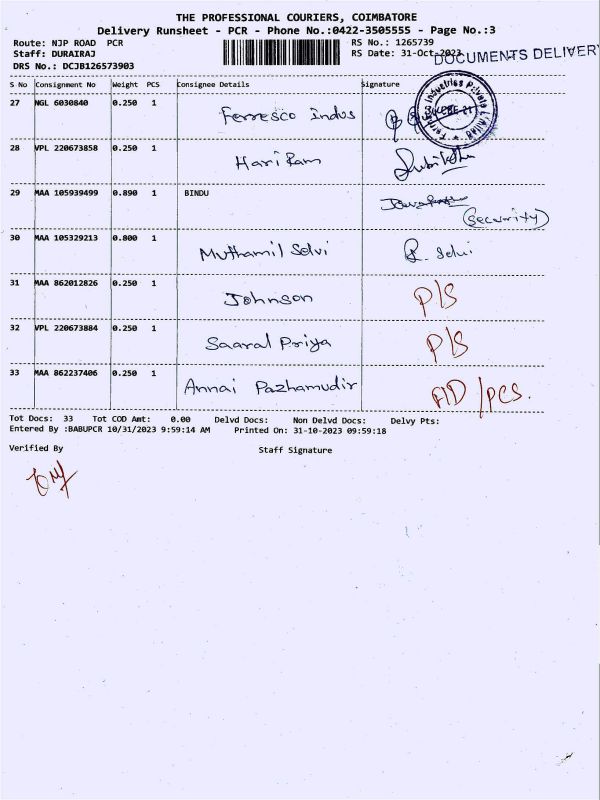 THE PROFESSIONAL COURIERS, COIMBATORE
Delivery Runsheet - PCR - Phone No.:0422-3505555 - Page No.:3
Route: NJP ROAD PCR RS No.: 1265739
Staff: DURAIRAJ RS Date: 31-Oct-2023
DOCUMENTS DELIVERY
DRS No.: DCJB126573903
S No Consignment No Weight PCS Consignee Details Signature
27 NGL 6030840 0.250 1 Ferresco Indus
Industries Private Limited
28 VPL 220673858 0.250 1 Hari Ram
29 MAA 105939499 0.890 1 BINDU
(Security)
30 MAA 105329213 0.800 1 Muthamil Selvi R. Selvi
31 MAA 862012826 0.250 1 Johnson P/S
32 VPL 220673884 0.250 1 Saaral Priya P/S
33 MAA 862237406 0.250 1 Annai Pazhamudir A/D /PCS.
Tot Docs: 33 Tot COD Amt: 0.00 Delvd Docs: Non Delvd Docs: Delvy Pts:
Entered By :BABUPCR 10/31/2023 9:59:14 AM Printed On: 31-10-2023 09:59:18
Verified By Staff Signature